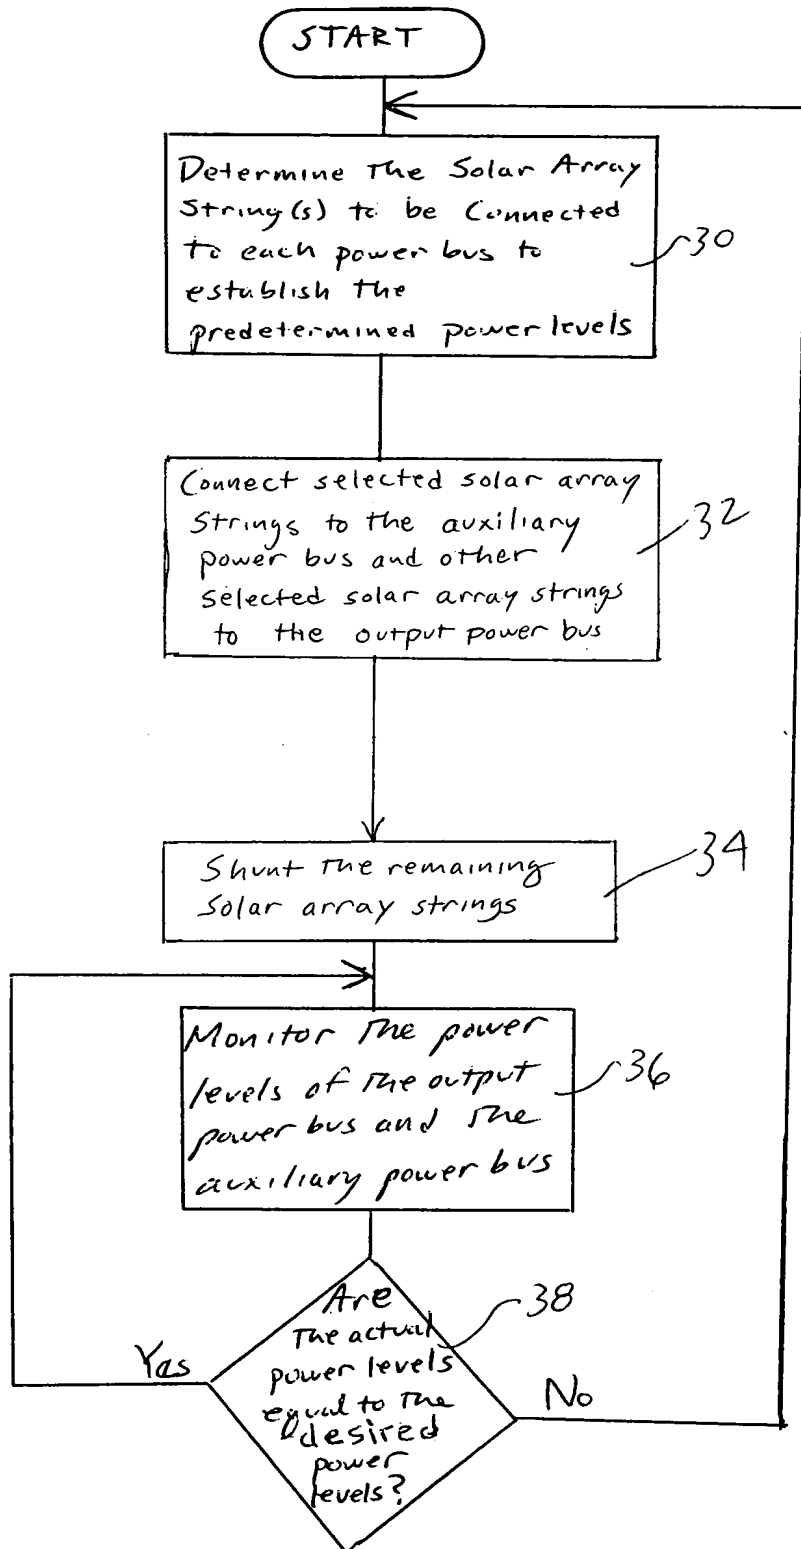 START
Determine The Solar Array
String(s) to be Connected
To each power bus to
establish the
predetermined power levels
30
Connect selected solar array
Strings to the auxiliary
power bus and other
selected solar array strings
to the output power bus
32
Shunt The remaining
Solar array strings
34
Monitor The power
levels of The output
power bus and The
auxiliary power bus
36
Are
The actual
power levels
equal to The
desired
power
levels?
38
Yes
No